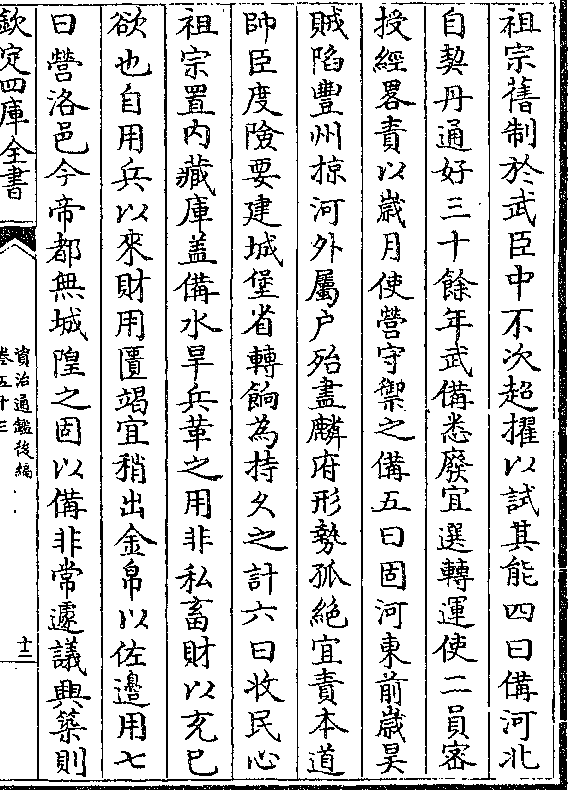 祖宗舊制於武臣中不次超擢以試其能四曰備河北
自契丹通好三十餘年武備悉廢宜選轉運使二員宻
授經畧責以歲月使營守禦之備五曰固河東前歲昊
賊陷豐州掠河外屬户殆盡麟府形勢孤絶宜責本道
帥臣度險要建城堡省轉餉為持久之計六曰收民心
祖宗置内藏庫盖備水旱兵革之用非私畜財以充已
欲也自用兵以來財用匱竭宜稍出金帛以佐邉用七
曰營洛邑今帝都無城隍之固以備非常遽議興築則
欽定四庫全書
資治通鑑後編
卷五十三
十二